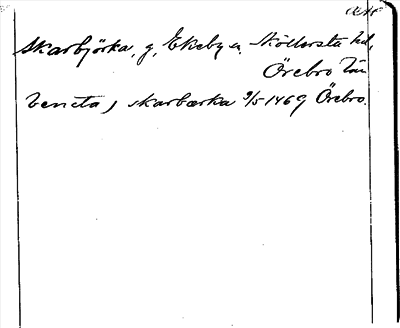 Skarbjörka, g, Ekeby s. Sköllersta hd,
Örebro län
beneta) skarbærka 9/5 1469 Örebro.